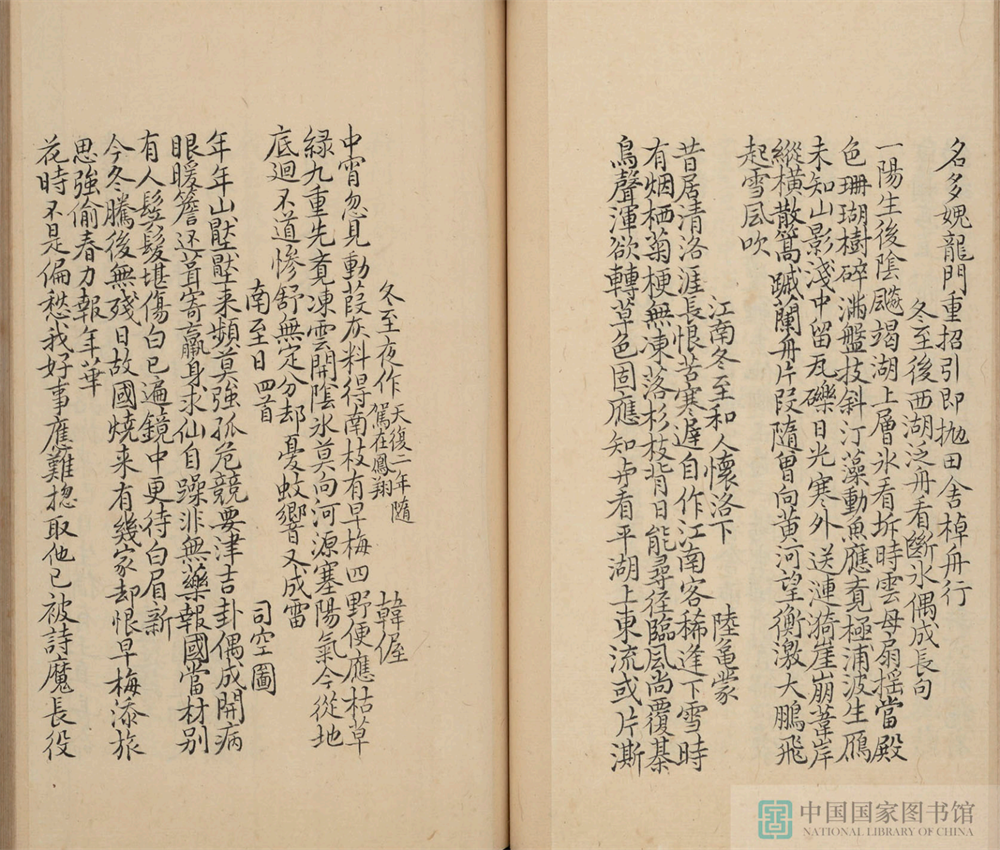 名多媿龍門重招引即抛田舍棹舟行
冬至後西湖泛舟看斷氷偶成長句
一陽生後陰飈竭湖上層氷看坼時雲母扇摇當殿
色珊瑚樹碎滿盤枝斜汀藻動魚應覔極浦波生鴈
未知山影淺中留瓦礫日光寒外送漣漪崖崩葦岸
縱横散篙蹴蘭舟片段隨曾向黄河望衡激大鵬飛
起雪風吹
江南冬至和人懷洛下
陸龜蒙
昔居清洛涯長恨苦寒遲自作江南客稀逢下雪時
有烟栖菊梗無凍落杉枝背日能尋徑臨風尚覆棊
鳥聲渾欲轉草色固應知與看平湖上東流或片澌
冬至夜作天復二年隨駕在鳳翔
韓偓
中宵忽見動葭灰料得南枝有早梅四野便應枯草
緑九重先覔凍雲開陰氷莫向河源塞陽氣今從地
底迴不道慘舒無定分却憂蚊響又成雷
南至日四首
司空圖
年年山壓壓来頻莫強孤危競要津吉卦偶成開病
眼暖簷还葺寄羸身求仙自躁非無藥報國當材别
有人鬓髮堪傷白已遍鏡中更待白眉新
今冬臘後無殘日故國燒来有幾家却恨早梅添旅
思強偷春力報年華
花時不是偏愁我好事應難揔取他已被詩魔長役
中国国家图书馆
NATIONAL LIBRARY OF CHINA